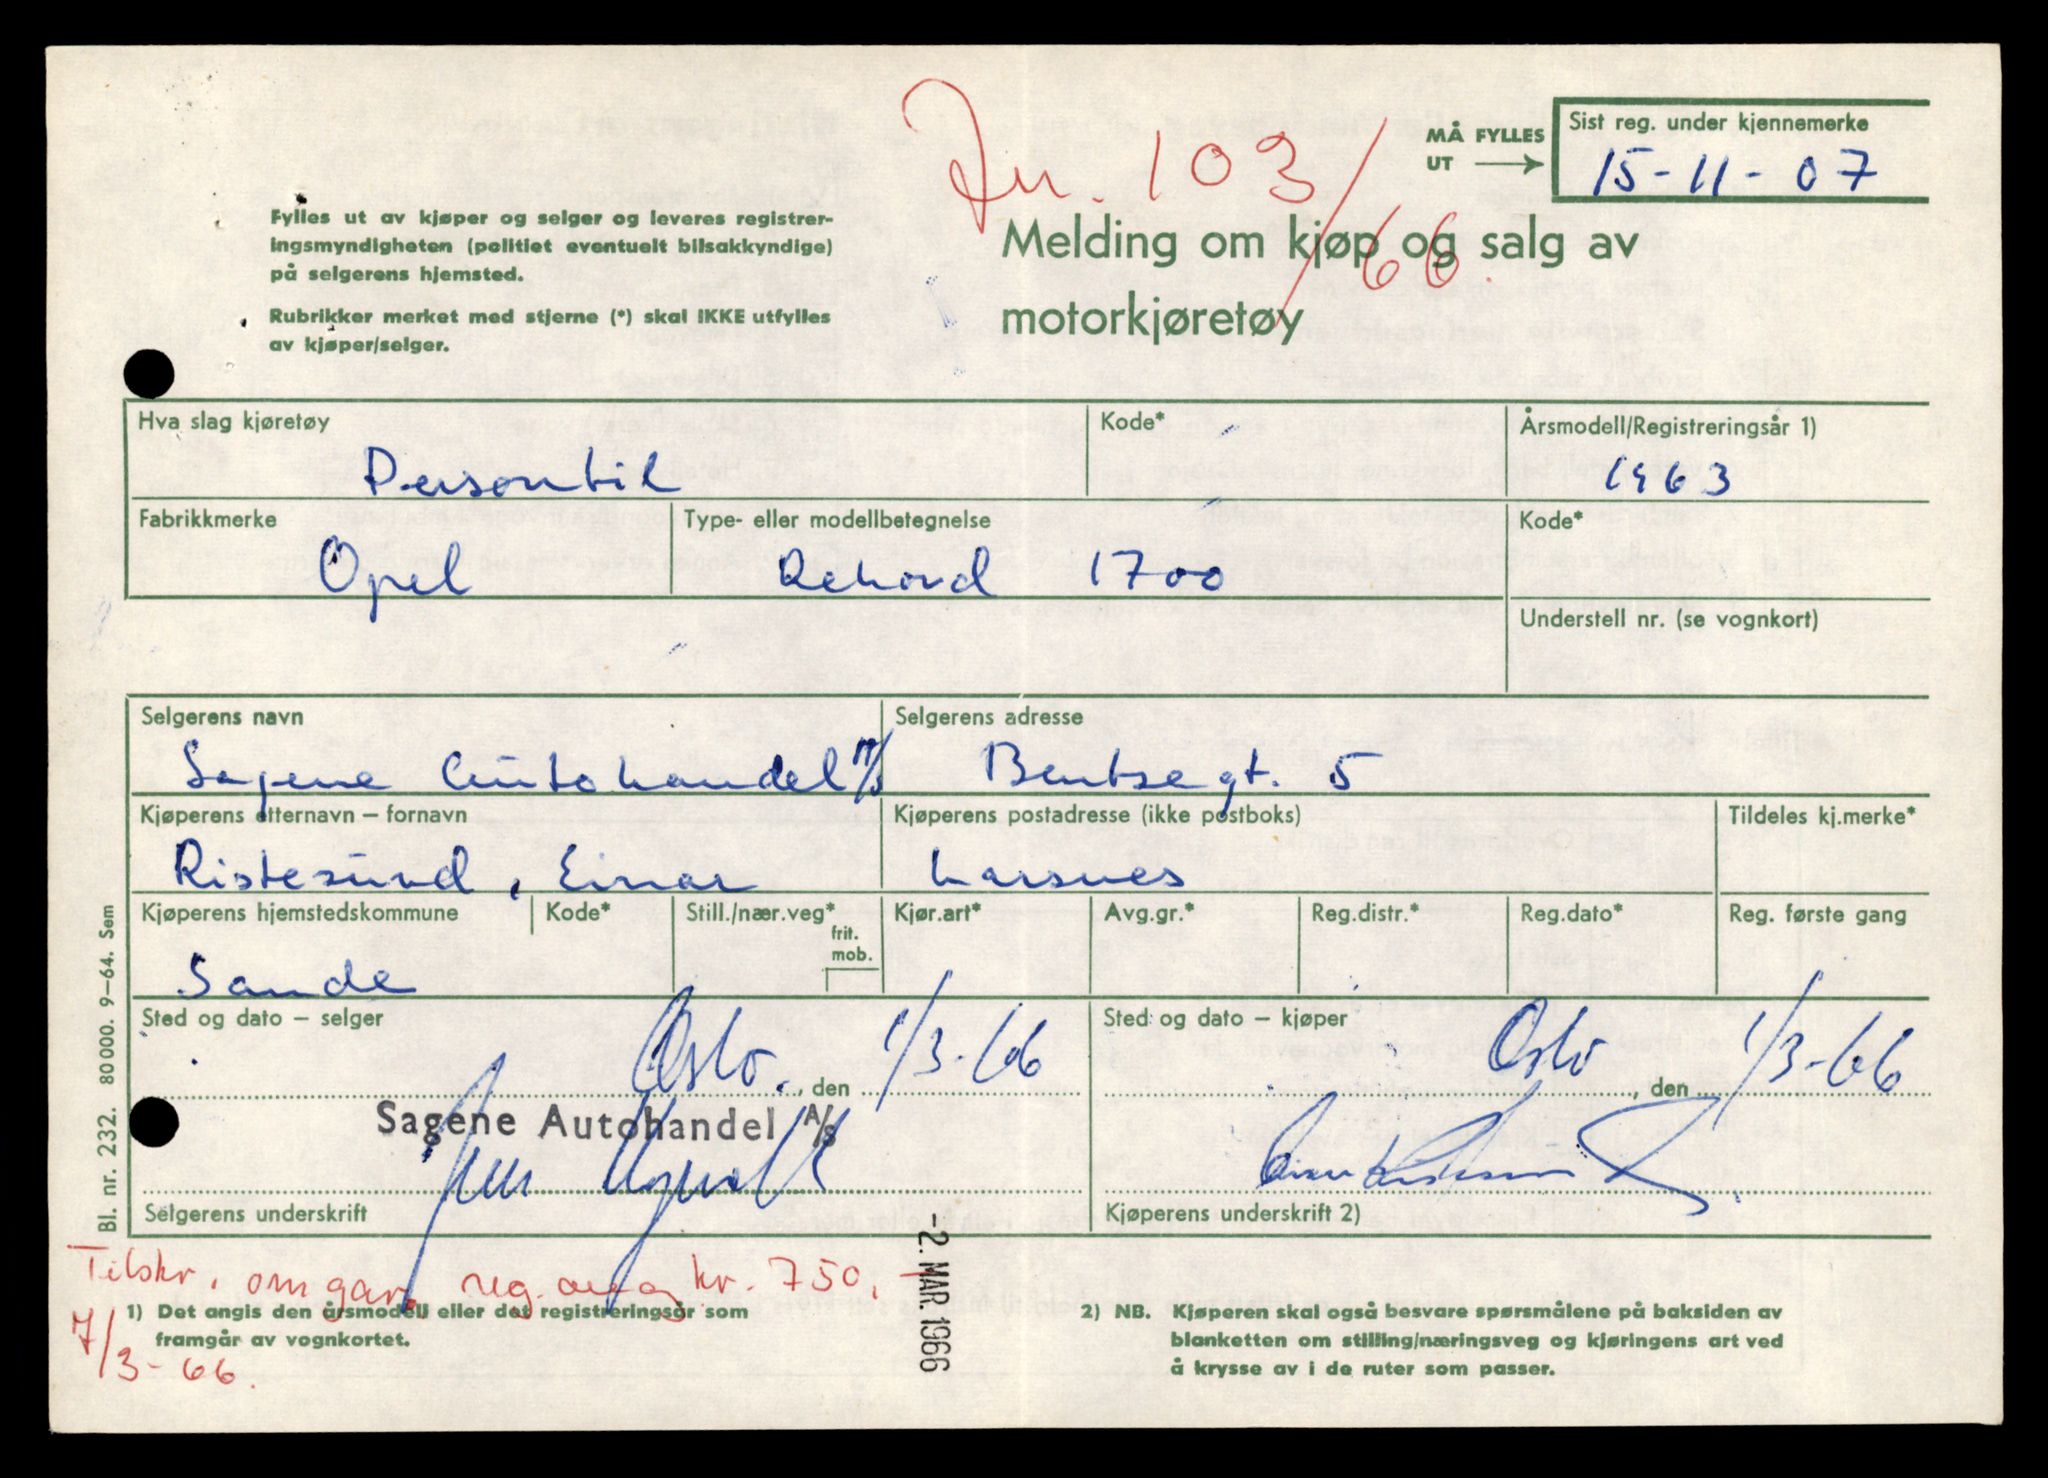 Jnr. 103/66.
MÅ FYLLES UT
Sist reg. under kjennemerke
15-11-07
Fylles ut av kjøper og selger og leveres registrer-
ingsmyndigheten (politiet eventuelt bilsakkyndige)
på selgerens hjemsted.
Rubrikker merket med stjerne (*) skal IKKE utfylles
av kjøper/selger.
Melding om kjøp og salg av
motorkjøretøy
Hva slag kjøretøy
Personbil
Kode*
Årsmodell/Registreringsår 1)
1963
Fabrikkmerke
Opel
Type- eller modellbetegnelse
Rekord 1700
Kode*
Understell nr. (se vognkort)
Selgerens navn
Sagene Autohandel A/S
Selgerens adresse
Bentsegt. 5
Kjøperens etternavn – fornavn
Ristesund, Einar
Kjøperens postadresse (ikke postboks)
Larsnes
Tildeles kj.merke*
Kjøperens hjemstedskommune
Sande
Kode*
Still./nær.veg*
frit.
mob.
Kjør.art*
Avg.gr.*
Reg.distr.*
Reg.dato*
Reg. første gang
Sted og dato – selger
Oslo, den 1/3-66
Sagene Autohandel A/S
Selgerens underskrift
Sted og dato – kjøper
Oslo, den 1/3-66
Kjøperens underskrift 2)
Bl. nr. 232. 80000. 9–64. Sem
-2. MAR. 1966
Tilskr. om gar. reg. avg. kr. 750,-
7/3-66.
1) Det angis den årsmodell eller det registreringsår som
framgår av vognkortet.
2) NB. Kjøperen skal også besvare spørsmålene på baksiden av
blanketten om stilling/næringsveg og kjøringens art ved
å krysse av i de ruter som passer.